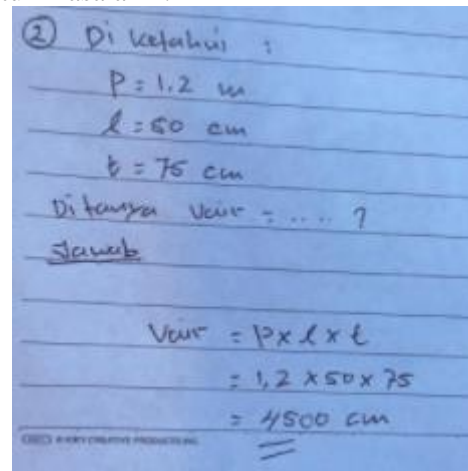 ② Diketahui :
P = 1,2 m
l = 50 cm
t = 75 cm
Ditanya Vair = .... ?
Jawab
Vair = P x l x t
= 1,2 x 50 x 75
= 4500 cm